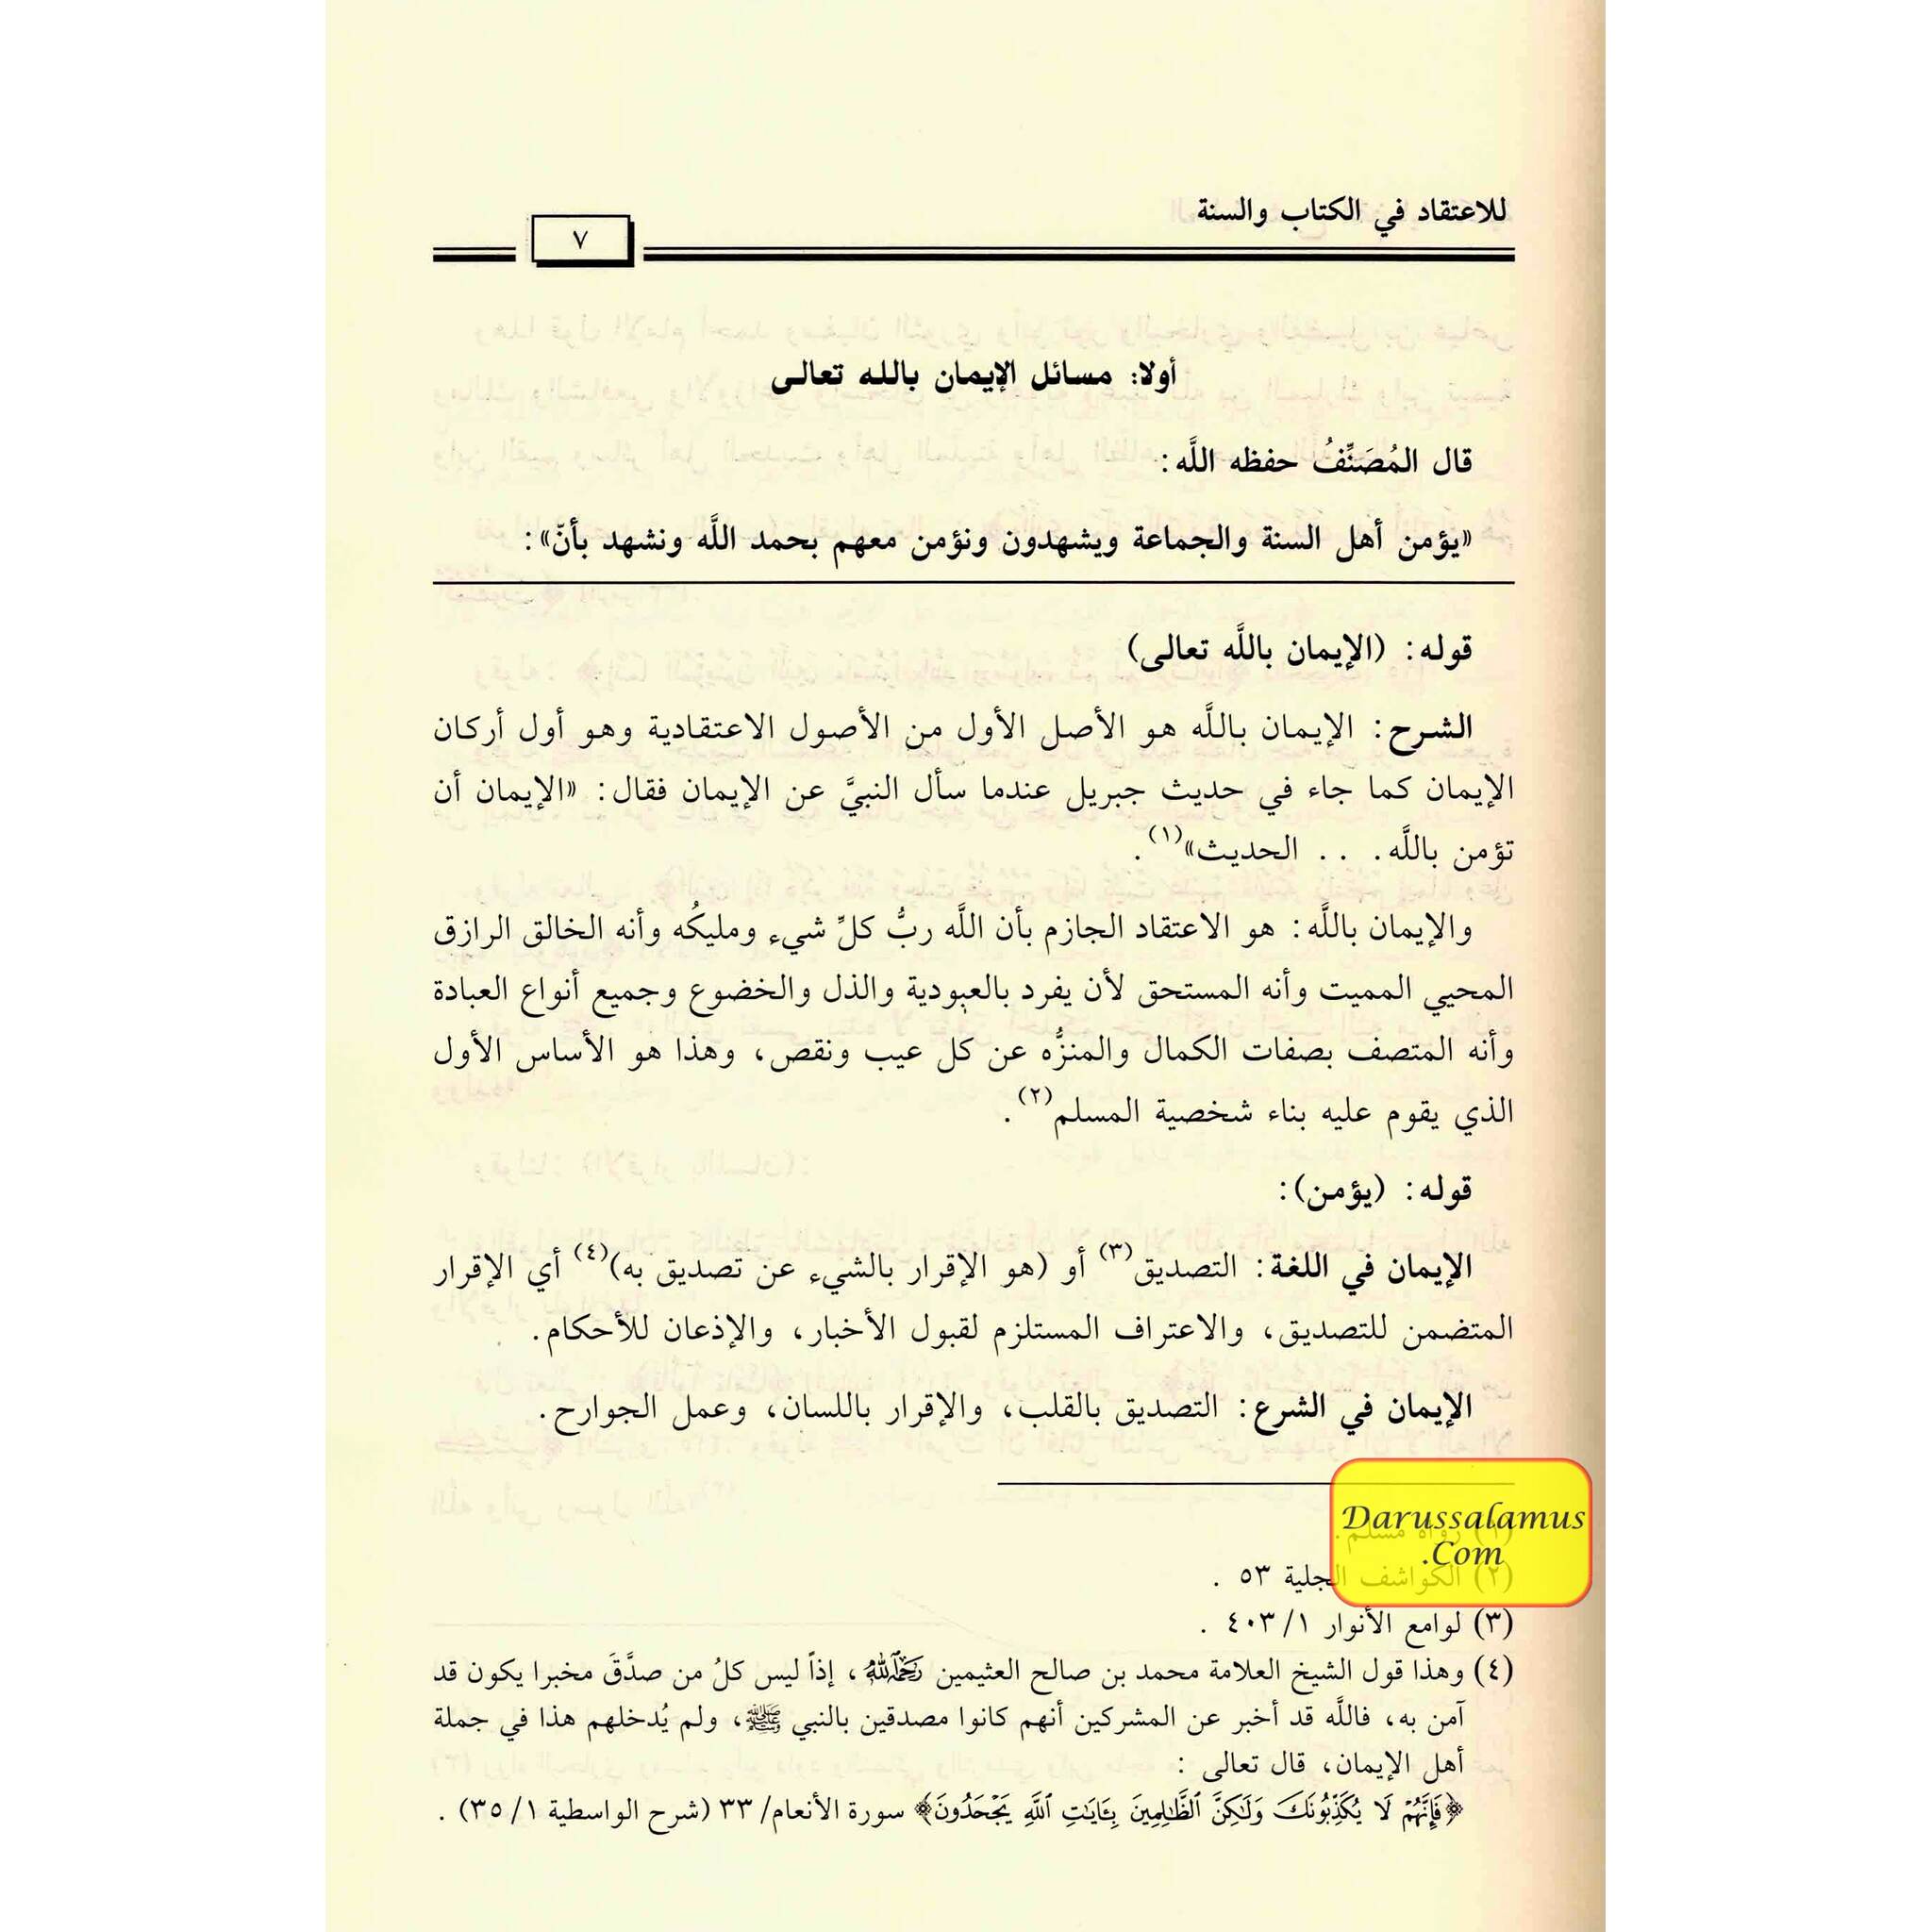 للاعتقاد في الكتاب والسنة
٧
أولا: مسائل الإيمان بالله تعالى
قال المُصَنِّفُ حفظه اللَّه:
«يؤمن أهل السنة والجماعة ويشهدون ونؤمن معهم بحمد اللَّه ونشهد بأنّ»:
قوله: (الإيمان باللَّه تعالى)
الشرح: الإيمان باللَّه هو الأصل الأول من الأصول الاعتقادية وهو أول أركان
الإيمان كما جاء في حديث جبريل عندما سأل النبيَّ عن الإيمان فقال: «الإيمان أن
تؤمن باللَّه. . . الحديث»(١).
والإيمان باللَّه: هو الاعتقاد الجازم بأن اللَّه ربُّ كلِّ شيء ومليكُه وأنه الخالق الرازق
المحيي المميت وأنه المستحق لأن يفرد بالعبودية والذل والخضوع وجميع أنواع العبادة
وأنه المتصف بصفات الكمال والمنزُّه عن كل عيب ونقص، وهذا هو الأساس الأول
الذي يقوم عليه بناء شخصية المسلم(٢).
قوله: (يؤمن):
الإيمان في اللغة: التصديق(٣) أو (هو الإقرار بالشيء عن تصديق به)(٤) أي الإقرار
المتضمن للتصديق، والاعتراف المستلزم لقبول الأخبار، والإذعان للأحكام.
الإيمان في الشرع: التصديق بالقلب، والإقرار باللسان، وعمل الجوارح.
Darussalamus
.Com
(١) رواه مسلم.
(٢) الكواشف الجلية ٥٣ .
(٣) لوامع الأنوار ١/ ٤٠٣ .
(٤) وهذا قول الشيخ العلامة محمد بن صالح العثيمين رحمه الله، إذاً ليس كلُ من صدَّقَ مخبرا يكون قد
آمن به، فاللَّه قد أخبر عن المشركين أنهم كانوا مصدقين بالنبي ﷺ، ولم يُدخلهم هذا في جملة
أهل الإيمان، قال تعالى :
﴿فَإِنَّهُمْ لَا يُكَذِّبُونَكَ وَلَٰكِنَّ ٱلظَّٰلِمِينَ بِـَٔايَٰتِ ٱللَّهِ يَجْحَدُونَ﴾ سورة الأنعام/ ٣٣ (شرح الواسطية ١/ ٣٥) .